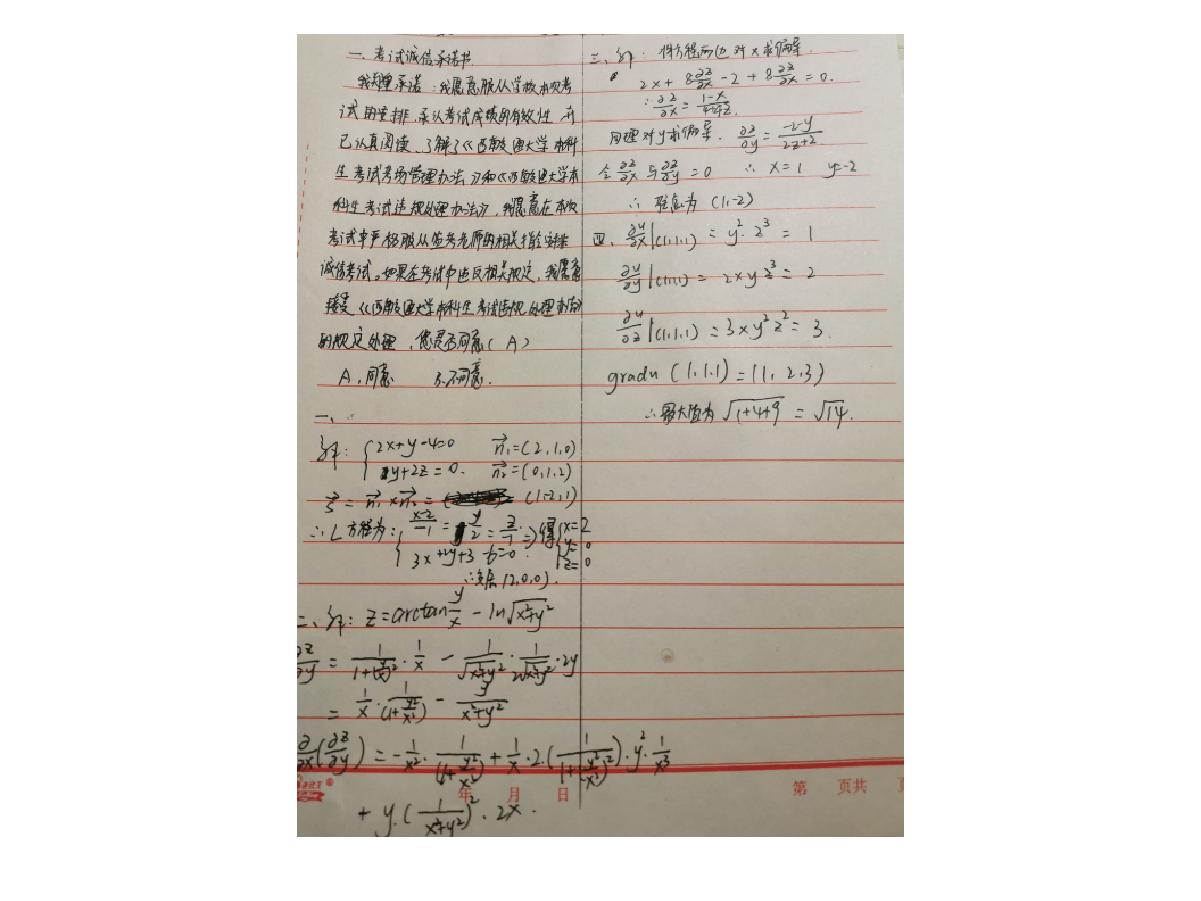 一、考试诚信承诺书
我郑重承诺：我愿意服从学校本次考
试的安排，承认考试成绩的有效性，并
已认真阅读、了解了《西南交通大学本科
生考试考场管理办法》和《西南交通大学本
科生考试违规处理办法》，我愿意在本次
考试中严格服从监考老师的相关指令安排
诚信考试。如果在考试中违反相关规定，我愿意
接受《西南交通大学本科生考试违规处理办法》
的规定处理，您是否同意（A）
A、同意 B、不同意.
一、
解: { 2x+y-4=0 n₁=(2,1,0)
y+2z=0. n₂=(0,1,2)
s = n₁×n₂ = (1,-2,1)
∴L方程为: { (x-2)/-1 = y/2 = z/-1 ⇒ 得 { x=2
3x+2y+3z-6=0. y=0
z=0
∴交点(2,0,0).
二、解: z=arctan y/x - ln√(x²+y²)
∂z/∂y = 1/(1+(y/x)²) · 1/x - 1/√(x²+y²) · 1/(2√(x²+y²)) · 2y
= 1/x · 1/(1+y²/x²) - y/(x²+y²)
∂/∂x(∂z/∂y) = -1/x² · 1/(1+y²/x²) + 1/x · 2 · (1/(1+y²/x²)²) · y² · 1/x³
+ y·(1/(x²+y²))² · 2x.
三、解: 得方程两边对x求偏导.
2x + 8∂z/∂x - 2 + 8∂z/∂x = 0.
∴∂z/∂x = (1-x)/(4+4z).
同理对y求偏导. ∂z/∂y = (-2-y)/(2z+2)
令∂z/∂x与∂z/∂y = 0 ∴ x=1 y=-2
∴ 驻点为 (1,-2)
四、∂u/∂x|(1,1,1) = y²·z³ = 1
∂u/∂y|(1,1,1) = 2xyz³ = 2
∂u/∂z|(1,1,1) = 3xy²z² = 3.
gradu (1,1,1) = (1,2,3)
∴最大值为 √(1+4+9) = √14.
年 月 日
第 页共 页